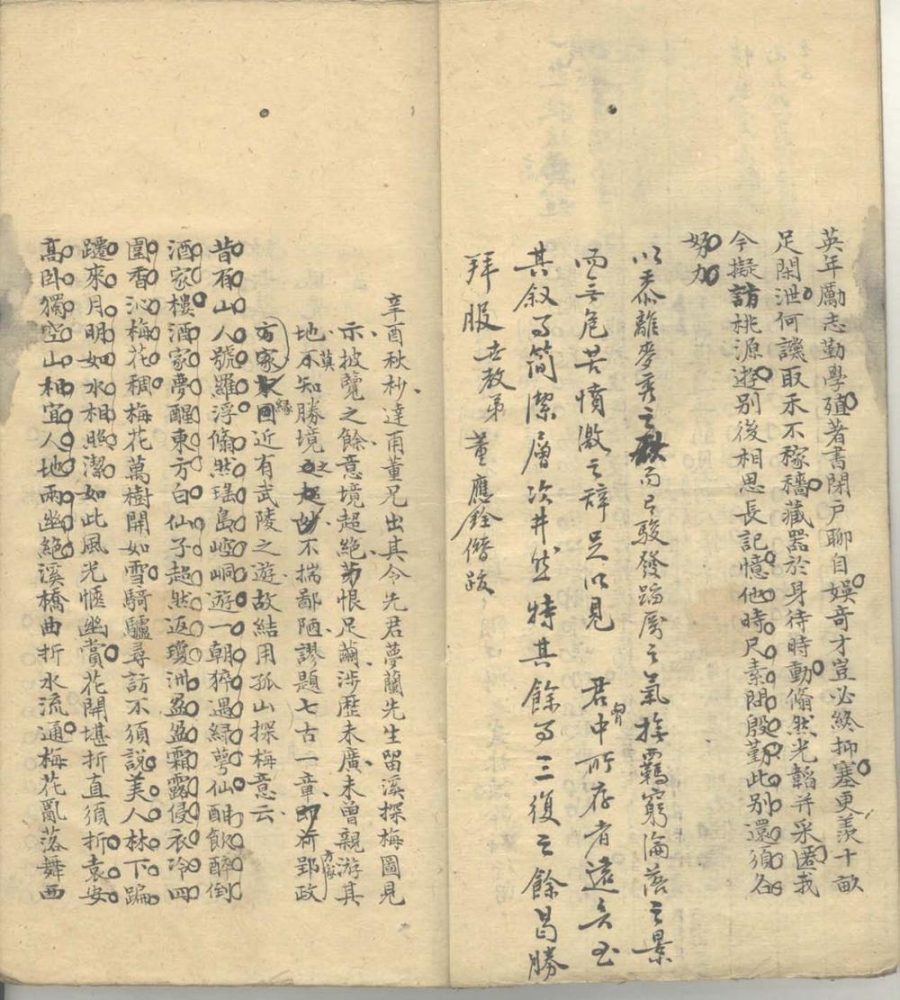 英年勵志勤學殖著書閉戶聊自娛奇才豈必終抑塞更羨十畝
足閑泄何譏取禾不稼穡藏器於身待時動翛然光韜并采匿我
今擬訪桃源遊別後相思長記憶他時尺素問殷勤此別還須各
努力
以黍離麥秀之而已駿發蹈厲之氣撫羈窮淪落之景
而無危苦憤激之辭足以見 君胸中所存者遠矣至
其敘事簡潔層次井然特其餘事三復之餘曷勝
拜服 世教弟 董應銓僭跋
辛酉秋杪達甫董兄出其令先君夢蘭先生留溪探梅圖見
示披覽之餘意境超絕第恨足繭涉歷未廣未曾親游其
地莫知勝境之不揣鄙陋謬題七古一章郢政
方家緣近有武陵之遊故結用孤山探梅意云
昔有山人號羅浮翛然瑤島崆峒遊一朝猝遇綠萼仙酣飲醉倒
酒家樓酒家夢醒東方白仙子超然返瓊洲盈盈霜露侵衣冷四
圍香沁梅花稠梅花萬樹開如雪騎驢尋訪不須說美人林下蹁
躚來月明如水相照潔如此風光愜幽賞花開堪折直須折袁安
高臥獨空山相宜人地兩幽絕溪橋曲折水流通梅花亂落舞西